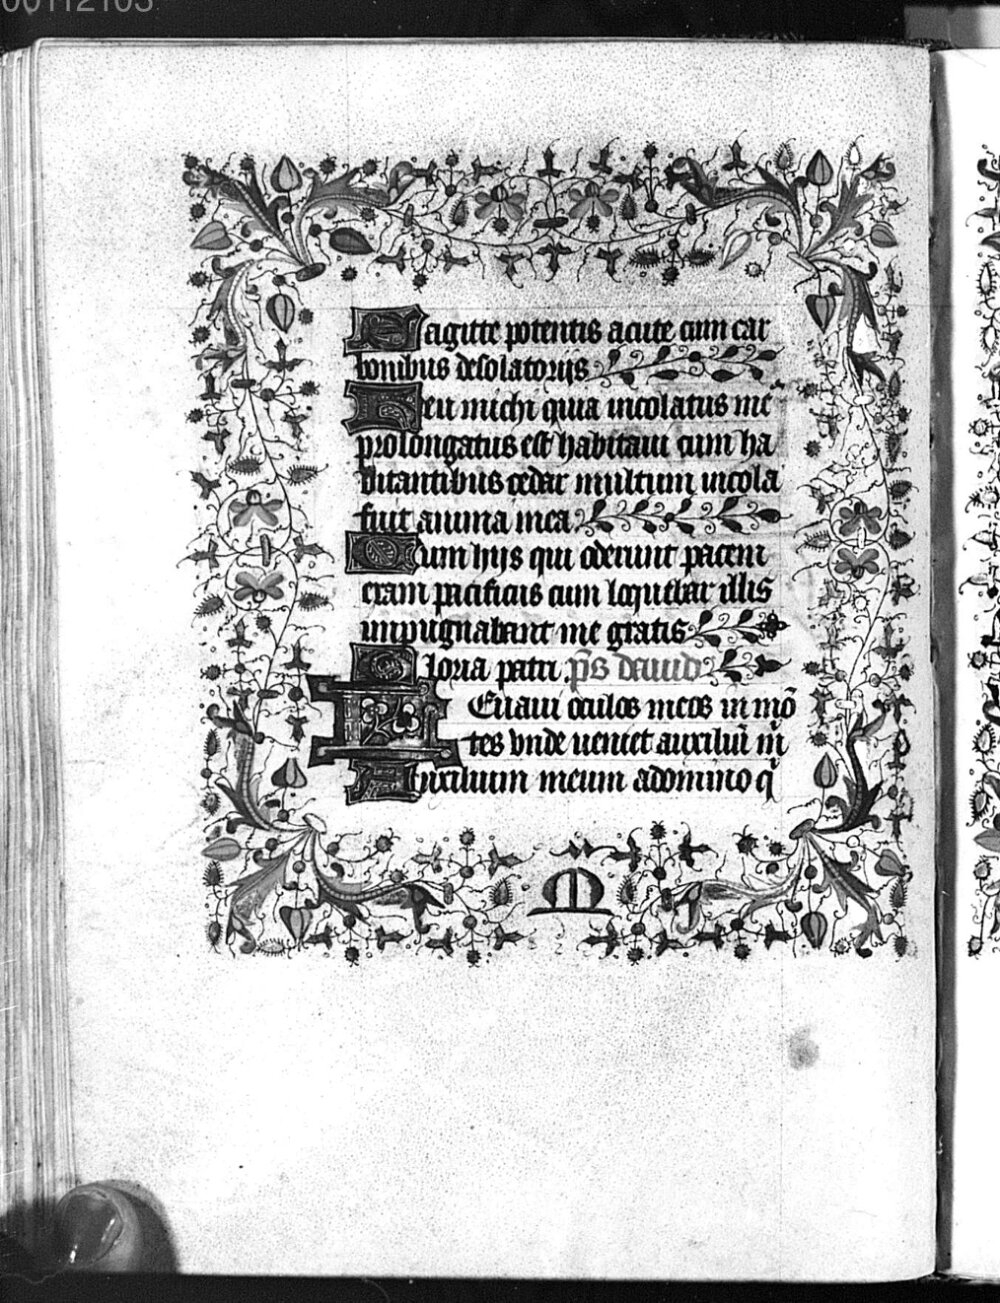 00112103
Sagitte potentis acute cum car
bonibus desolatoriis
Heu michi quia incolatus me᷒
prolongatus est habitaui cum ha
bitantibus cedar multum incola
fuit anima mea
Cum hiis qui oderunt pacem
eram pacificus cum loquebar illis
impugnabant me gratis
Gloria patri p̄s dauid
Leuaui oculos meos in mō
tes vnde ueniet auxiliū m̄
Auxilium meum adomino q̄